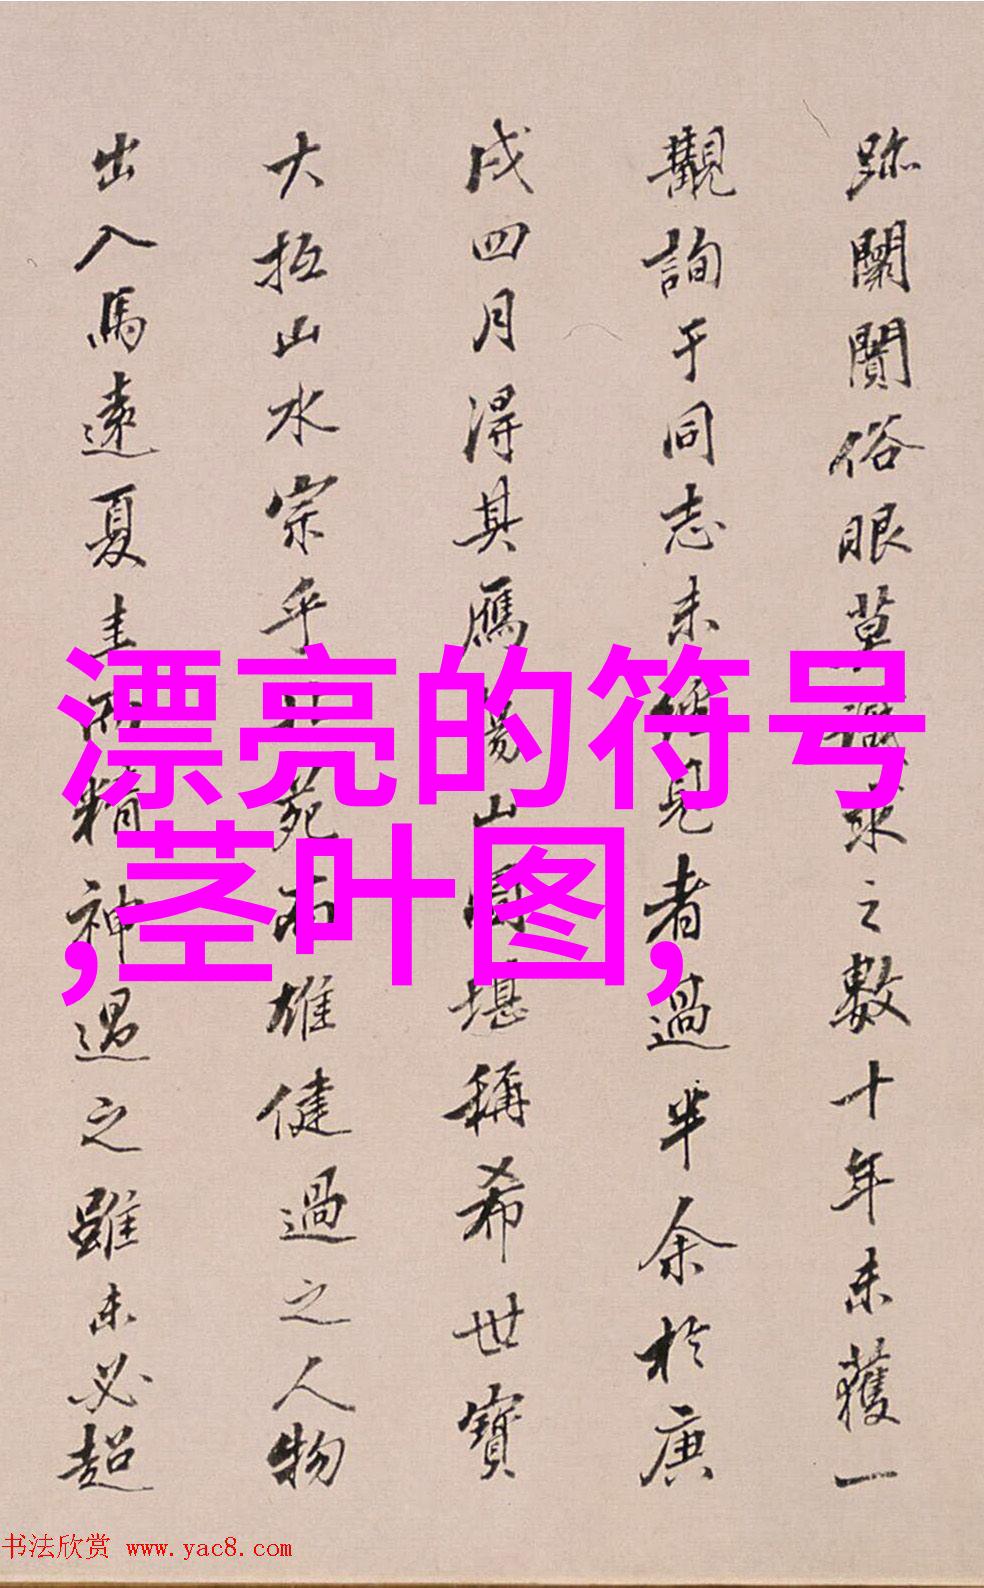 跡闤闠俗眼草
之數十年未獲一
觀詢于同志未
見者過半余於庚
戌四月得其鴈
山
堪稱希世寶
大抵山水宗
乎
苑而雄健過之人物
出入馬遠夏圭而精神過之雖未必超
漂亮的符号
,茎叶图,
书法欣赏 www.yac8.com